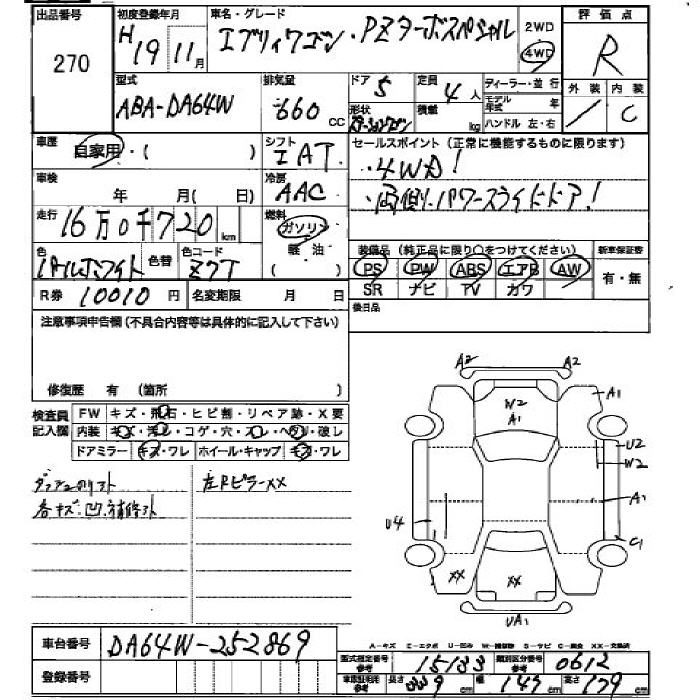 出品番号 初度登録年月 車名・グレード 評価点
270 H19 11月 エブリィワゴン・PZターボスペシャル 2WD 4WD R
型式 排気量 ドア 5 定員 4人 ディーラー・並行 外装 内装
ABA-DA64W 660cc 形状 ステーションワゴン 積載 kg モデル年式 年 / C
ハンドル 左・右
車歴 自家用・( ) シフト IAT セールスポイント(正常に機能するものに限ります)
車検 年 月(日) 冷房 AAC 4WD!
走行 16万0千720km 燃料 ガソリン 軽油 両側パワースライドドア!
色 パールホワイト 色替 色コード Z7T 装備品(純正品に限り○をつけてください) 新車保証書
PS PW ABS エアB AW 有・無
R券 10010円 名変期限 月 日 SR ナビ TV カワ
後日品
注意事項申告欄(不具合内容等は具体的に記入して下さい)
修復歴 有 (箇所 )
検査員記入欄 FW キズ・飛石・ヒビ割・リペア跡・X要
内装 キズ・汚れ・コゲ・穴・スレ・ヘタリ・破し
ドアミラー キズ・ワレ ホイール・キャップ キズ・ワレ
左RピラーXX
各キズ.凹.補修アト
A2 A2
W2 A1
A1
U2
W2
A1
U4
C1
XX XX
UA1
車台番号 DA64W-252869
A-キズ E-エクボ U-凹み W-補修跡 S-サビ C-腐食 XX-交換済
登録番号 型式指定番号 参考 15133 類別区分番号 参考 0612
車庫証明用 参考 長さ 339cm 幅 147cm 高さ 179cm